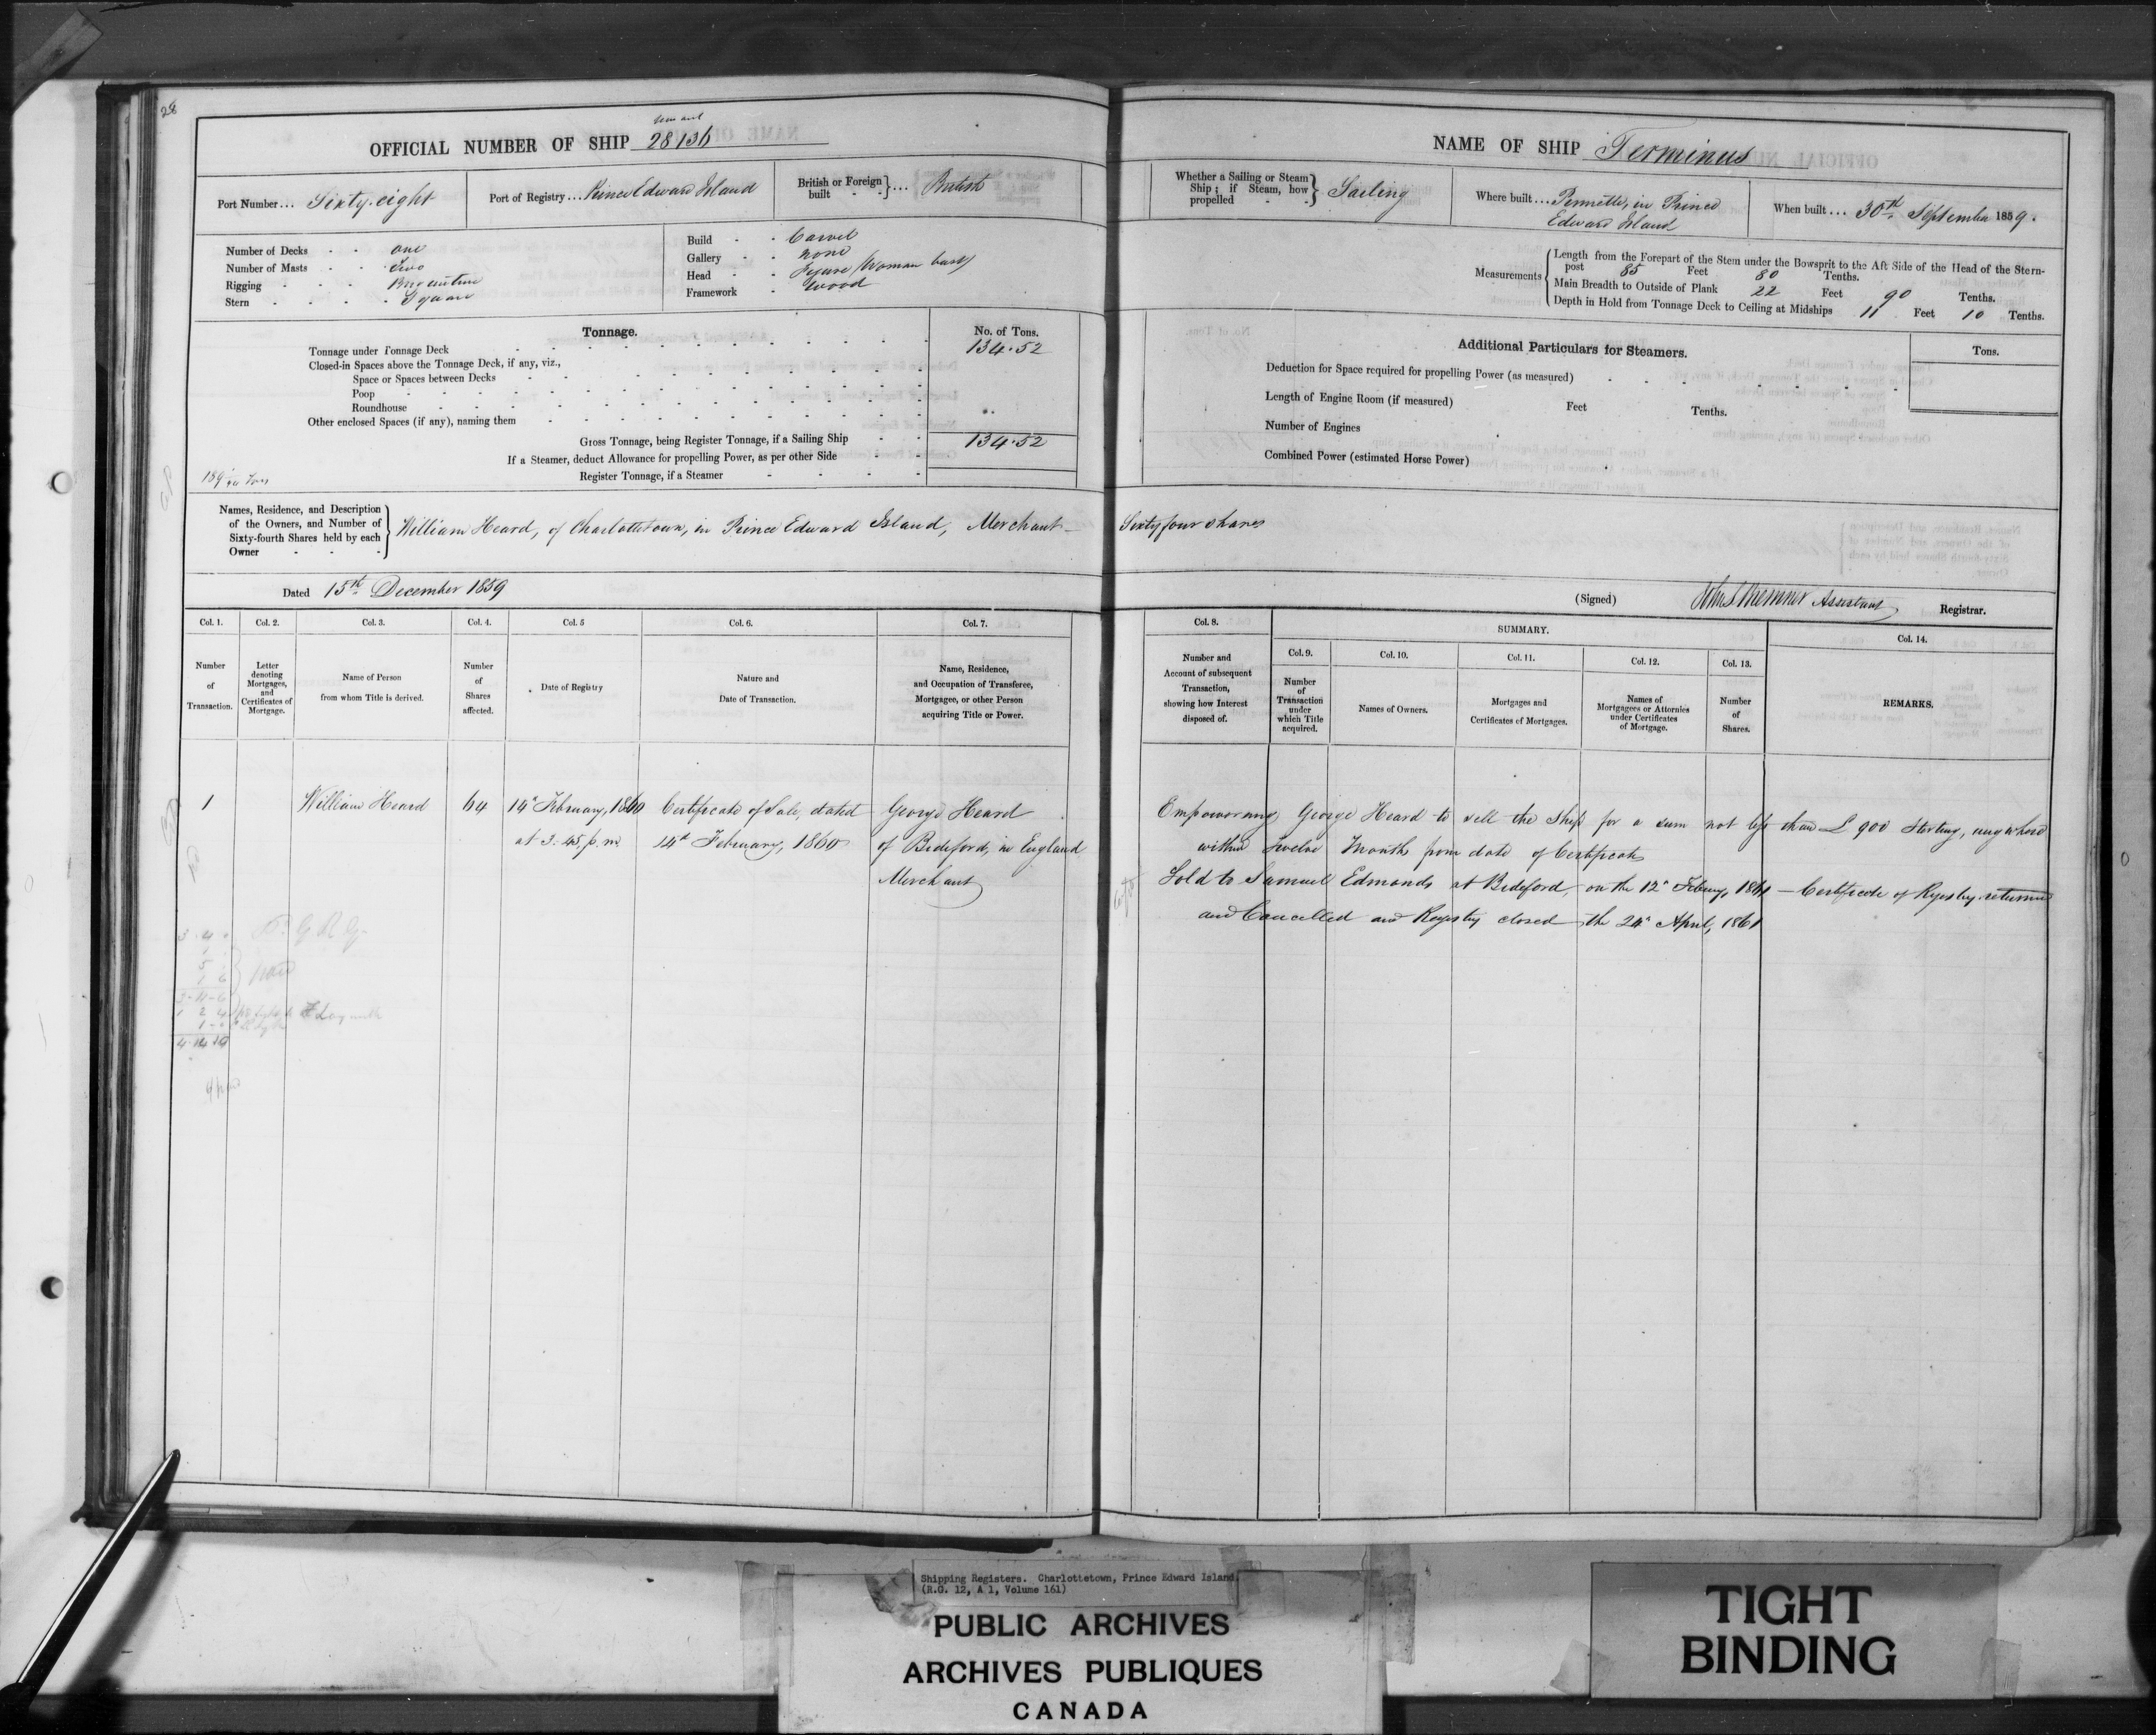 28
OFFICIAL NUMBER OF SHIP 28136
Port Number... Sixty-eight
Port of Registry... Prince Edward Island
British or Foreign built }... British
Number of Decks - - one
Number of Masts - - Two
Rigging - - - Brigantine
Stern - - - - Square
Build - - Carvel
Gallery - - none
Head - - Figure (Woman bust)
Framework - Wood
Tonnage.
No. of Tons.
Tonnage under Tonnage Deck 134.52
Closed-in Spaces above the Tonnage Deck, if any, viz.,
Space or Spaces between Decks
Poop
Roundhouse
Other enclosed Spaces (if any), naming them
Gross Tonnage, being Register Tonnage, if a Sailing Ship - - 134.52
If a Steamer, deduct Allowance for propelling Power, as per other Side
Register Tonnage, if a Steamer
Names, Residence, and Description
of the Owners, and Number of
Sixty-fourth Shares held by each
Owner
William Heard, of Charlottetown, in Prince Edward Island, Merchant —
Dated 15th December 1859
Col. 1. Col. 2. Col. 3. Col. 4. Col. 5 Col. 6. Col. 7.
Number of Transaction.
Letter denoting Mortgages, and Certificates of Mortgage.
Name of Person from whom Title is derived.
Number of Shares affected.
Date of Registry
Nature and Date of Transaction.
Name, Residence, and Occupation of Transferee, Mortgagee, or other Person acquiring Title or Power.
1 William Heard 64 14th February, 1860 Certificate of Sale, dated George Heard
at 3.45, p.m. 14th February, 1860 of Bideford, in England
Merchant
NAME OF SHIP Terminus
Whether a Sailing or Steam Ship; if Steam, how propelled } Sailing
Where built... in Prince
Edward Island
When built... 30th September 1859.
Measurements
Length from the Forepart of the Stem under the Bowsprit to the Aft Side of the Head of the Stern-
post 85 Feet 80 Tenths.
Main Breadth to Outside of Plank 22 Feet 90 Tenths.
Depth in Hold from Tonnage Deck to Ceiling at Midships 11 Feet 10 Tenths.
Additional Particulars for Steamers.
Tons.
Deduction for Space required for propelling Power (as measured)
Length of Engine Room (if measured) Feet Tenths.
Number of Engines
Combined Power (estimated Horse Power)
Sixty four shares
(Signed) Assistant Registrar.
Col. 8. SUMMARY. Col. 14.
Col. 9. Col. 10. Col. 11. Col. 12. Col. 13.
Number and Account of subsequent Transaction, showing how Interest disposed of.
Number of Transaction under which Title acquired.
Names of Owners.
Mortgages and Certificates of Mortgages.
Names of Mortgagees or Attornies under Certificates of Mortgage.
Number of Shares.
REMARKS.
Empowering George Heard to sell the Ship for a sum not less than £900 Sterling, anywhere
within Twelve Months from date of Certificate
Sold to Samuel Edmonds at Bideford, on the 12th 1861 — Certificate of Registry returned
and Cancelled and Registry closed the 24th April, 1861
Shipping Registers. Charlottetown, Prince Edward Island.
(R.G. 12, A 1, Volume 161)
PUBLIC ARCHIVES
ARCHIVES PUBLIQUES
CANADA
TIGHT
BINDING